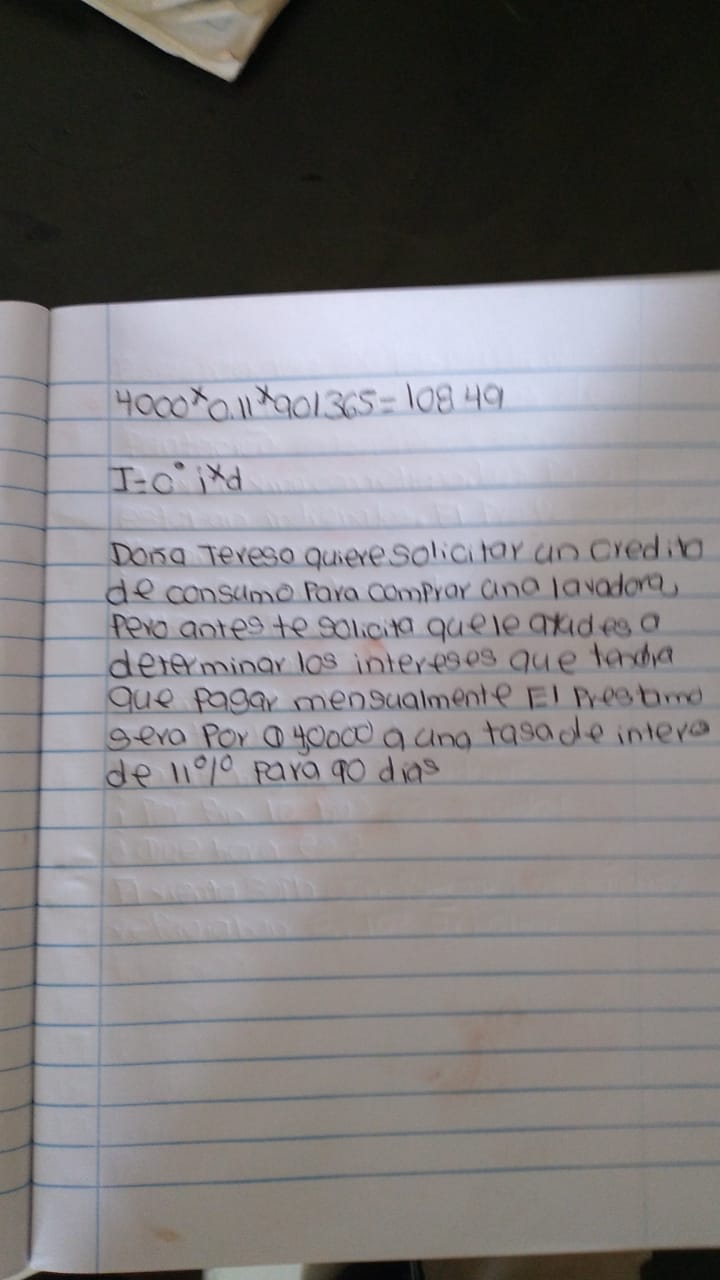 4000*0.11*901365=108 49
I=c° i*d
Doña Tereso quiere solicitar un credito
de consumo Para comprar una lavadora,
Pero antes te solicita que le ayudes a
determinar los intereses que tendria
que pagar mensualmente El Prestamo
sera Por Q 40000 a una tasa de interes
de 11% para 90 dias